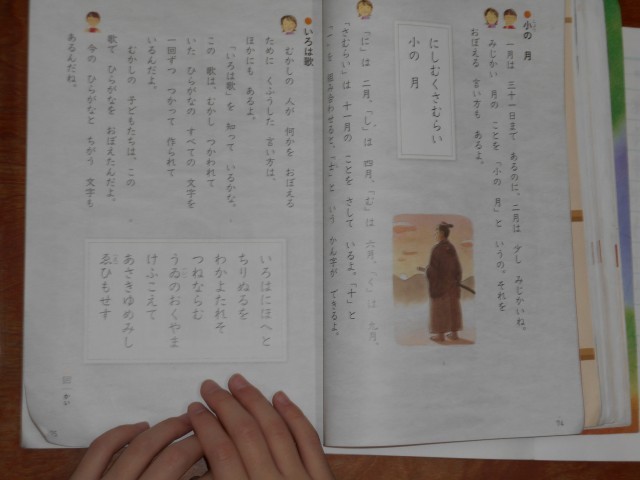 小の 月
一月は 三十一日まで あるのに、二月は 少し みじかいね。
みじかい 月の ことを 「小の 月」と いうの。それを
おぼえる 言い方も あるよ。
にしむくさむらい
小の 月
「に」は 二月、「し」は 四月、「む」は 六月、「く」は 九月、
「さむらい」は 十一月の ことを さして いるよ。「十」と
「一」を 組み合わせると、「士」と いう かん字が できるよ。
74
いろは歌
むかしの 人が 何かを おぼえる
ために くふうした 言い方は、
ほかにも あるよ。
「いろは歌」を 知って いるかな。
この 歌は、むかし つかわれて
いた ひらがなの すべての 文字を
一回ずつ つかって 作られて
いるんだよ。
むかしの 子どもたちは、この
歌で ひらがなを おぼえたんだよ。
今の ひらがなと ちがう 文字も
あるんだね。
いろはにほへと
ちりぬるを
わかよたれそ
つねならむ
うゐのおくやま
けふこえて
あさきゆめみし
ゑひもせす
75